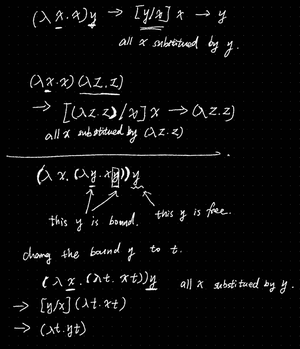 (λ x.x)y → [y/x] x → y
all x substitued by y.
(λx.x) (λz.z)
→ [(λz.z)/x] x → (λz.z)
all x substitued by (λz.z)
(λ x. (λy.xy))y
this y is bound. this y is free.
change the bound y to t.
(λx. (λt. xt))y all x substitued by y.
→ [y/x] (λt.xt)
→ (λt.yt)